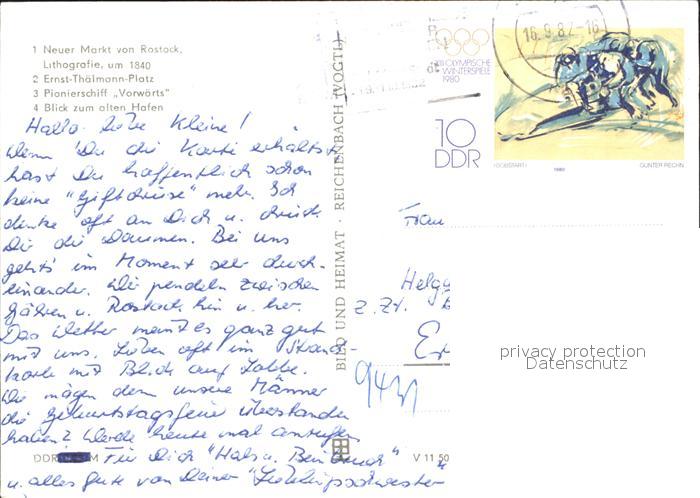 1 Neuer Markt von Rostock,
Lithografie, um 1840
2 Ernst-Thälmann-Platz
3 Pionierschiff „Vorwärts"
4 Blick zum alten Hafen
Hallo liebe Kleine!
Wenn Du die Karte erhältst
hast Du hoffentlich schon
keine "Giftdrüse" mehr. Ich
denke oft an Dich u. drück
Dir die Daumen. Bei uns
geht's im Moment sehr durch-
einander. Wir pendeln zwischen
u. Rostock hin u. her.
Das Wetter meint es ganz gut
mit uns. oft im Strand-
korb mit Blick auf
Wie mögen denn unsere Männer
die Geburtstagsfeier überstanden
haben? Werde heute mal anrufen
Für Dich "Hals u. Beinbruch"
u. alles gute von Deiner "Lieblingsschwester
DDR M
V 11 50
BILD UND HEIMAT · REICHENBACH (VOGTL)
16.9.82-16
XIII OLYMPISCHE
WINTERSPIELE
1980
10
DDR
BOBSTART
1980
GÜNTER RECHN
Frau
Helga
z. Zt.
privacy protection
Datenschutz